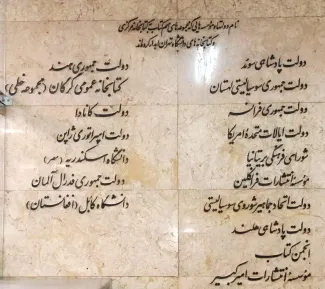 نام دولتها و مؤسسه‌هایی که مجموعه‌های مهم کتاب به کتابخانهٔ مرکزی
و کتابخانه‌های دانشگاه تهران اهدا کرده‌اند
دولت پادشاهی سوئد
دولت جمهوری سوسیالیستی
دولت جمهوری فرانسه
دولت ایالات متحدهٔ امریکا
شورای فرهنگی بریتانیا
مؤسسهٔ انتشارات فرانکلین
دولت اتحاد جماهیر شوروی سوسیالیستی
دولت پادشاهی هلند
انجمن کتاب
مؤسسهٔ انتشارات امیرکبیر
دولت جمهوری هند
کتابخانهٔ عمومی گرگان (مجموعه خطی)
دولت کانادا
دولت امپراتوری ژاپن
دانشگاه اسکندریه (مصر)
دولت جمهوری فدرال آلمان
دانشگاه کابل (افغانستان)